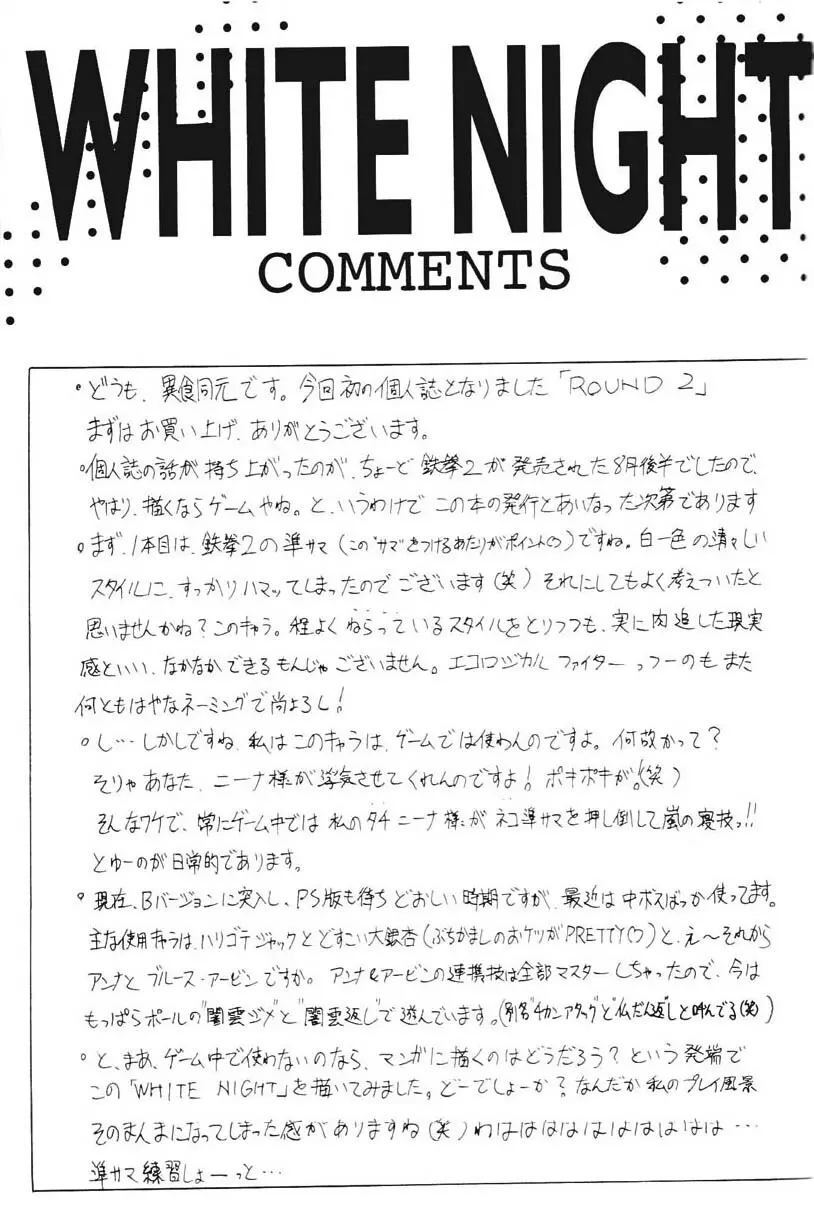 WHITE NIGHT
COMMENTS
・どうも、異食同元です。今回初の個人誌となりました「ROUND 2」
まずはお買い上げ、ありがとうございます。
・個人誌の話が持ち上がったのが、ちょーど鉄拳2が発売された8月後半でしたので、
やはり、描くならゲームやね。と、いうわけでこの本の発行とあいなった次第であります
・まず、1本目は、鉄拳2の準サマ(この"サマ"をつけるあたりがポイント♡)ですね。白一色の清々しい
スタイルに、すっかりハマッてしまったのでございます(笑)それにしてもよく考えついたと
思いませんかね?このキャラ。程よくねらっているスタイルをとりつつも、実に肉迫した現実
感といい、なかなかできるもんじゃございません。エコロジカルファイターっつーのもまた
何ともはやなネーミングで尚よろし!
・し…しかしですね、私はこのキャラは、ゲームでは使わんのですよ。何故かって?
そりゃあなた、ニーナ様が浮気させてくれんのですよ!ポキポキが。(笑)
そんなワケで、常にゲーム中では私のタチニーナ様がネコ準サマを押し倒して嵐の寝技っ!!
とゆーのが日常的であります。
・現在、Bバージョンに突入し、PS版も待ちどおしい時期ですが、最近は中ボスばっか使ってます。
主な使用キャラは、ハリゴテジャックとどすこい大銀杏(ぶちかましのおケツがPRETTY♡)と、え〜それから
アンナとブルース・アービンですか。アンナ&アービンの連携技は全部マスターしちゃったので、今は
もっぱらポールの"闇雲ジメ"と"闇雲返し"で遊んでいます。(別名"チカンアタック"と"仏だん返し"と呼んでる(笑)
・と、まあ、ゲーム中で使わないのなら、マンガに描くのはどうだろう?という発端で
この「WHITE NIGHT」を描いてみました。どーでしょーか?なんだか私のプレイ風景
そのまんまになってしまった感がありますね(笑)わははははははははは…
準サマ練習しょーっと…